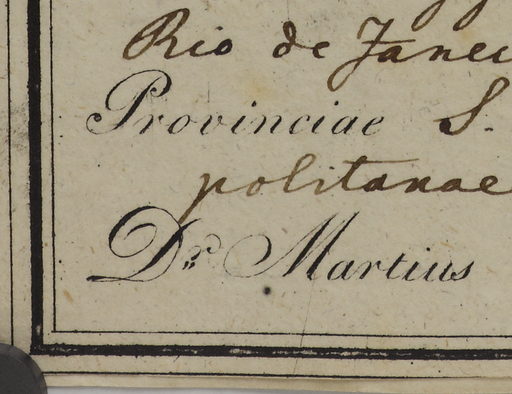 Rio de Janei
Provinciae S.
politanae
Dr. Martius